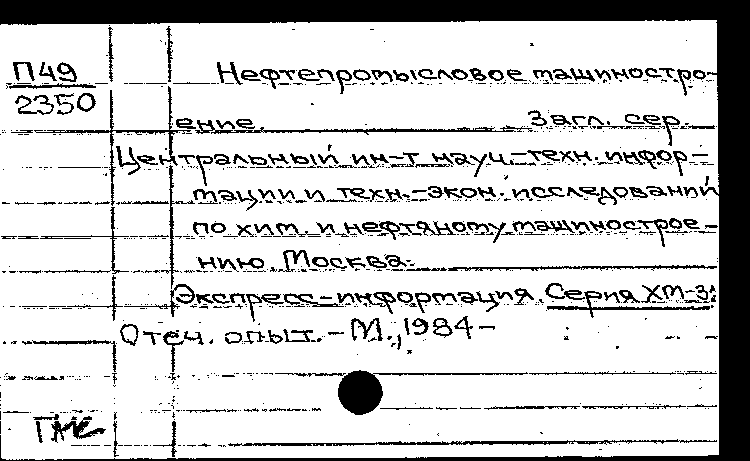 П49
2350
Нефтепромысловое машиностро-
ение. Загл. сер.
Центральный ин-т науч.-техн. инфор-
мации и техн.-экон. исследований
по хим. и нефтяному машинострое-
нию. Москва.
Экспресс-информация. Серия ХМ-3:
Отеч. опыт. - М., 1984 -